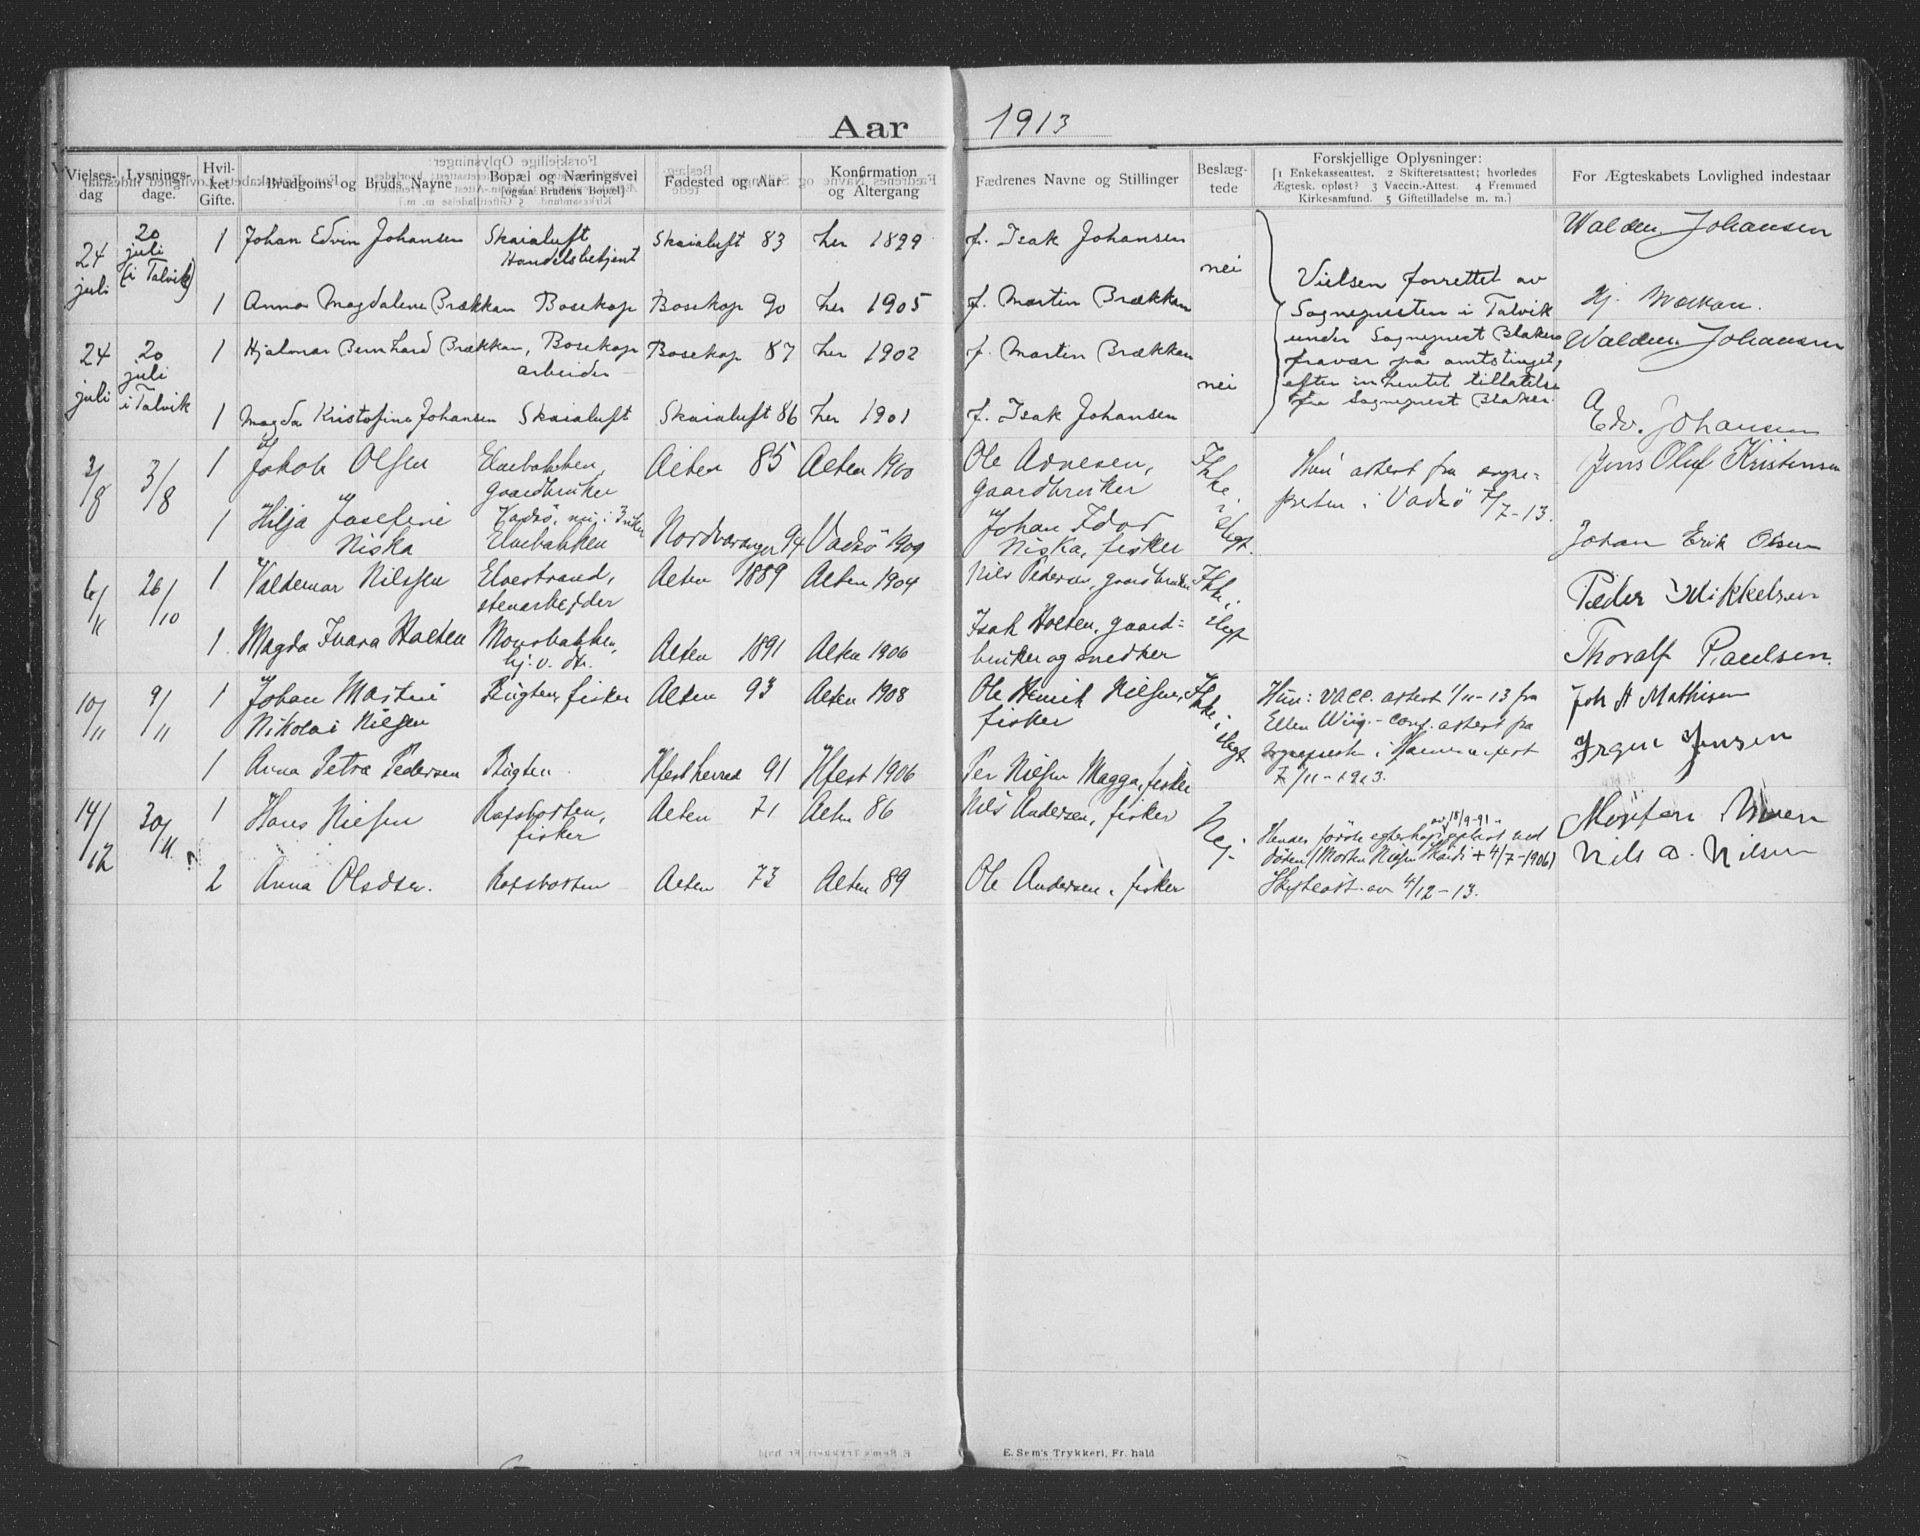 Aar 1913
Vielses-dag
Lysnings-dage.
Hvil-ket Gifte.
Brudgoms og Bruds Navne
Bopæl og Næringsvei [ogsaa Brudens Bopæl]
Fødested og Aar
Konfirmation og Altergang
Fædrenes Navne og Stillinger
Beslæg-tede
Forskjellige Oplysninger:
[1 Enkekasseattest. 2 Skifteretsattest; hvorledes
Ægtesk. opløst? 3 Vaccin.-Attest. 4 Fremmed
Kirkesamfund. 5 Giftetilladelse m. m.]
For Ægteskabets Lovlighed indestaar
24 juli
20 juli (i Talvik)
1 Johan Edvin Johansen
Skaialuft Handelsbetjent
Skaialuft 83
her 1899
f. Isak Johansen
nei
Walden Johansen
1 Anna Magdalene Brækkan
Bosekop
Bosekop 90
her 1905
f. Martin Brækkan
Vielsen forrettet av
Sognepresten i Talvik
under Sogneprest Blakers
fravær på amtstinget,
efter inhentet tillatelse
fra Sogneprest Blaker.
24 juli
20 juli i Talvik
1 Hjalmar Bernhard Brækkan,
Bosekop arbeider
Bosekop 87
her 1902
f. Martin Brækkan
nei
Walden Johansen
1 Magda Kristofine Johansen
Skaialuft
Skaialuft 86
her 1901
f. Isak Johansen
Edv. Johansen
3/8
3/8
1 Jakob Olsen
Elvebakken, gaardbruker
Alten 85
Alten 1900
Ole Arnesen, gaardbruker
Ikke i slegt.
Hun attest fra sogne-
presten i Vadsö 7/7-13.
Jens Oluf Kristensen
1 Hilja Josefine Niska
Vadsö, nu i Elvebakken
Nordvaranger 94
Vadsö 1909
Johan Idor Niska, fisker
Johan Erik Olsen
6/11
26/10
1 Valdemar Nilssen
Elvestrand, stenarbeider
Alten 1889
Alten 1904
Nils Pedersen, gaardbruker
Ikke i slegt
Peder Mikkelsen
1 Magda Ivara Holten
Monsbakken, hj. v. dtr.
Alten 1891
Alten 1906
Isak Holten, gaard-
bruker og snedker
Thoralf Paulsen.
10/11
9/11
1 Johan Martin Nikolai Nilsen
Bugten, fisker
Alten 93
Alten 1908
Ole Henrik Nilsen, fisker
Ikke i slegt
Hun: vacc. attest 1/11-13 fra
Ellen Wiig.- conf. attest fra
sogneprest i Hammerfest
7/11-1913.
Joh A Mathisen
1 Anna Petra Pedersen
Bugten.
Hfest herred 91
Hfest 1906
Per Nilsen Magga, fisker
Jrgen Jensen
14/12
30/11.
1 Hans Nilsen
Rafsbotten, fisker
Alten 71
Alten 86
Nils Andersen, fisker
Nej.
Hendes förste egteskap av 18/9-91 oplöst ved
döden (Morten Nilsen Skaidi + 4/7-1906)
Skifteatt. av 4/12-13.
2 Anna Olsdtr.
Rafsbotten
Alten 73
Alten 89
Ole Andersen, fisker
Nils A. Nilsen
E. Sem's Trykkeri, Fr.hald